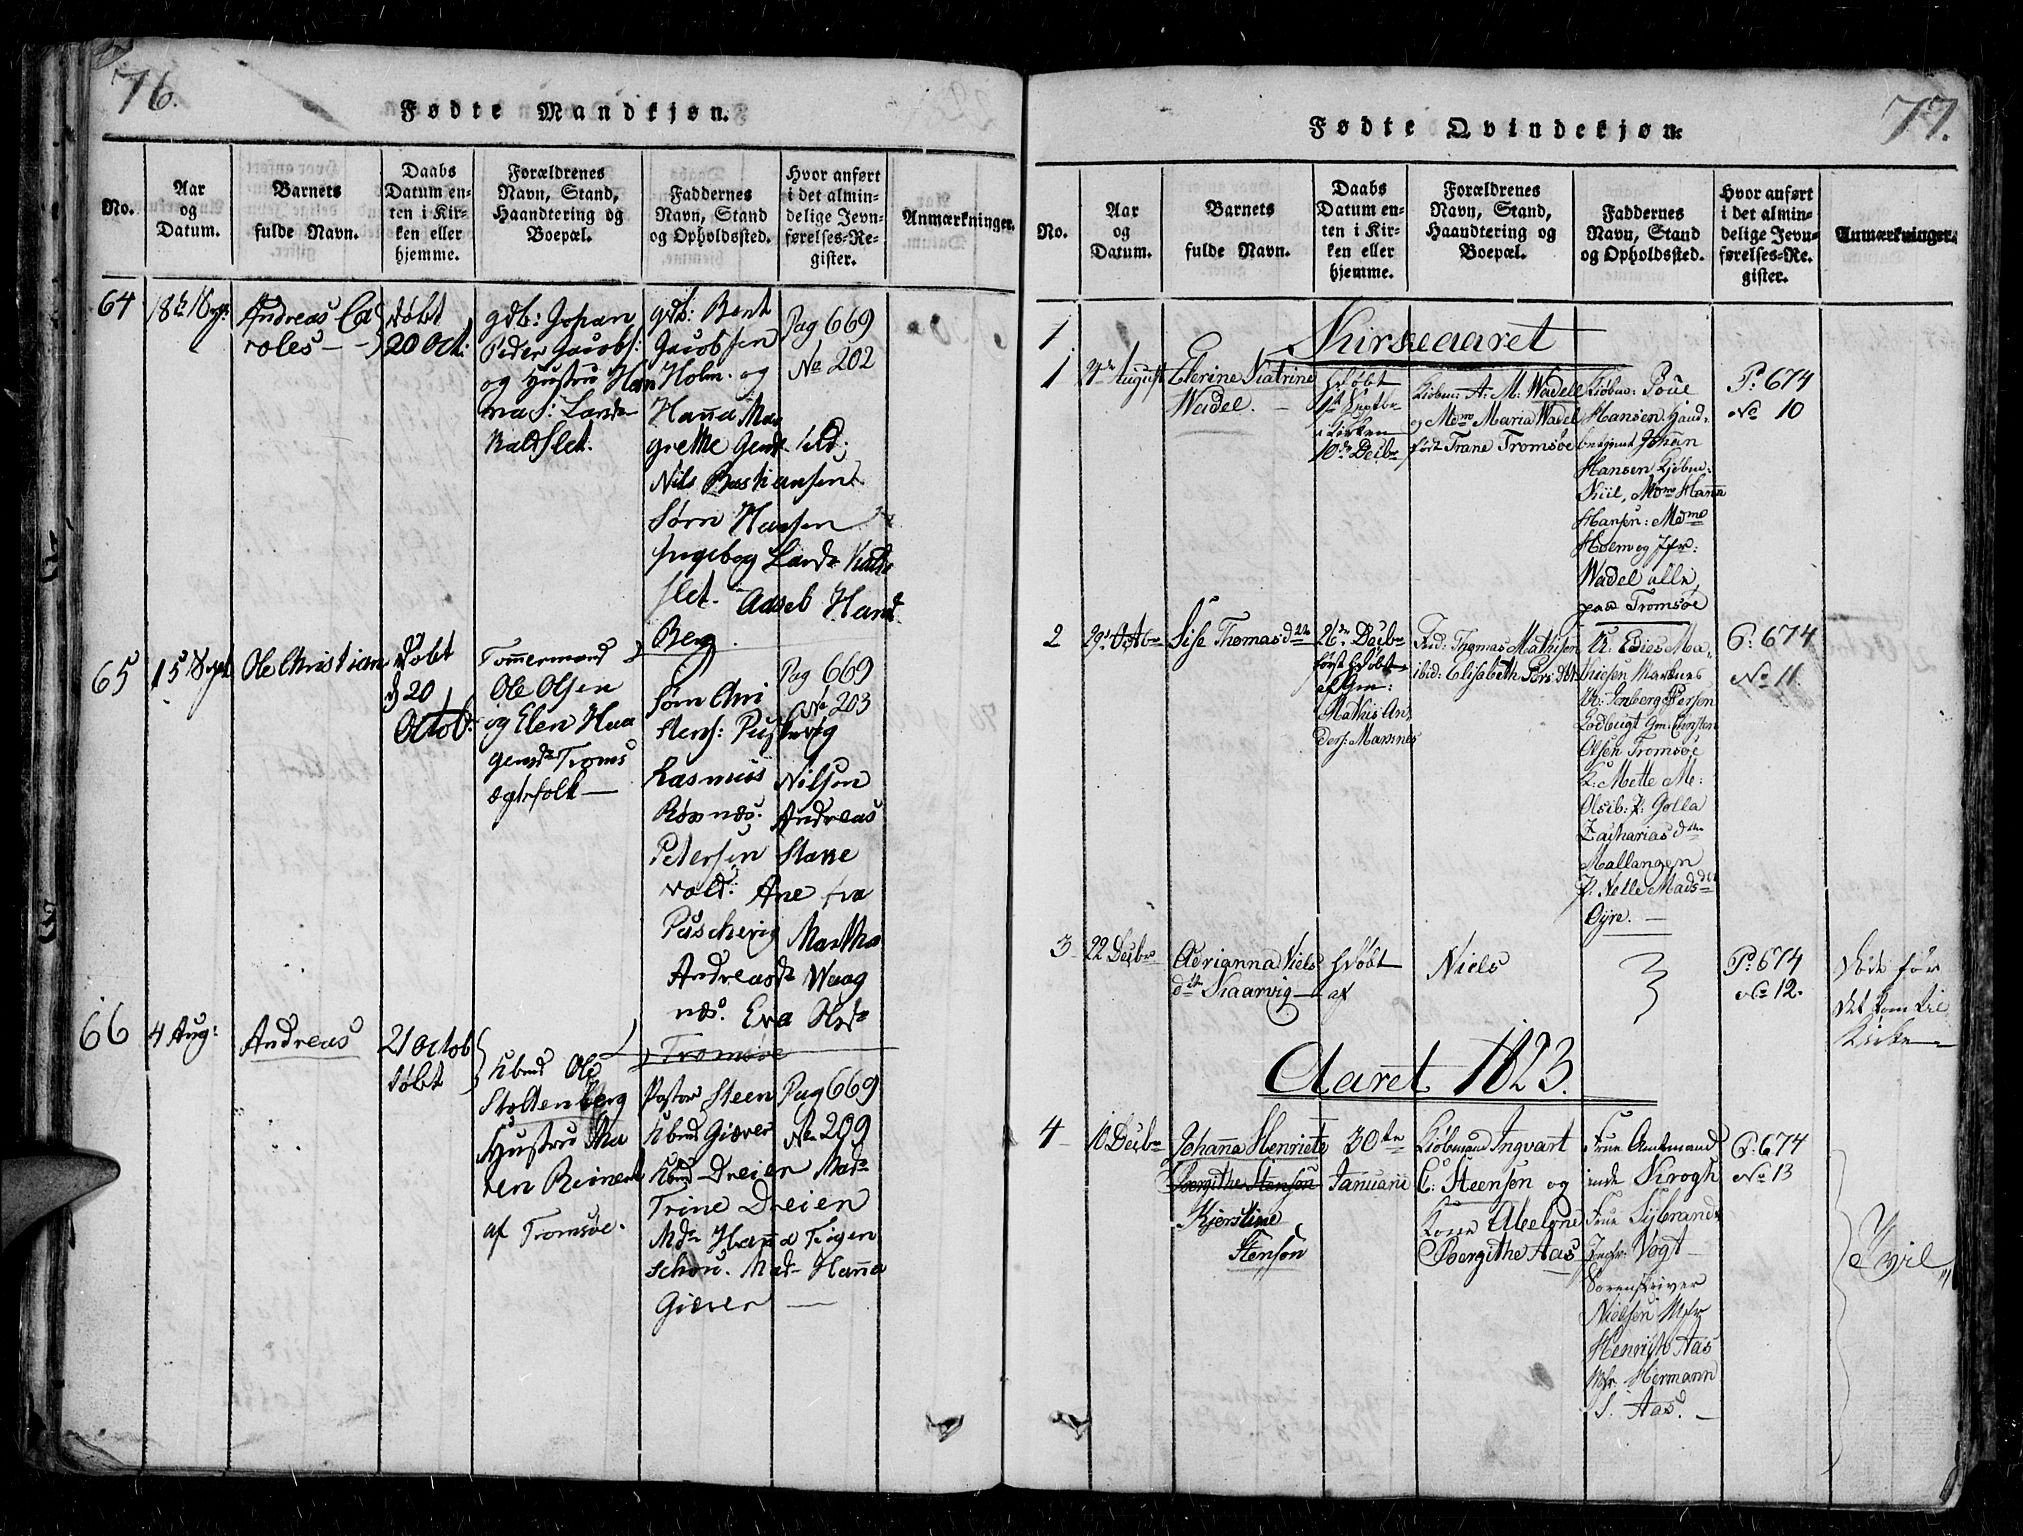 76.
Fødte Mandkjøn.
No.
Aar
og
Datum.
Barnets
fulde Navn.
Daabs
Datum en-
ten i Kir-
ken eller
hjemme.
Forældrenes
Navn, Stand,
Haandtering og
Boepæl.
Faddernes
Navn, Stand
og Opholdssted.
Hvor anført
i det almin-
delige Jevn-
førelses-Re-
gister.
Anmærkninger.
64
Andreas Ca
roles
døbt
20 Oct:
gdb: Johan
Peder Jacobs:
og Hustru Han
na S: Lands
Kaldslet.
gdb: Bent
Jacobsen
Holm. og
Hanna Mar
grethe
Nils Bastiansen
Sørn Hansen
Ingebog Lands Kalds
slet. Hans
Berg
Pag 669
No 202
65
15 Sept
Ole Christian
døbt
d 20
Octob:
Tømmermand
Ole Olsen
og Elen Haa
gensd Troms
ægtefolk
Sørn Chri
stens:
Rasmus Nilsen
Andreas
Petersen
vold: Ane fra
Martha
Andreasd Waag
næs. Eva
Tromsøe
Pag 669
No 203
66
4 Aug:
Andreas
21 Octob
døbt
Kbmd Ole
Stoltenberg
Hustru Ma
ren Reinert
af Tromsøe.
Pastor Steen
Kbmd Giæver
Kbmd Dreier Mad
Trine Dreier
Md Hanna Figen
schou. Mad Hanna
Giæver
Pag 669
No 209
77.
Fødte Qvindekjøn.
No.
Aar
og
Datum.
Barnets
fulde Navn.
Daabs
Datum en-
ten i Kir-
ken eller
hjemme.
Forældrenes
Navn, Stand,
Haandtering og
Boepæl.
Faddernes
Navn, Stand
og Opholdssted.
Hvor anført
i det almin-
delige Jevn-
førelses-Re-
gister.
Anmærkninger.
1
Kirkeaaret
1
August
Wadel.
hdøbt
1st Septbr
i Kirken
10de Decbr
Kiøbm: A: M: Wadel
og Mdme Maria Wadel
født Trane Tromsøe
Kiøbm: Poul
Hansen
Johan
Hansen Kjøbm:
Kiil, Mdme Hanna
Hansen: Mdme
Holm og Jfr:
Wadel alle
paa Tromsøe
P: 674
No 10
2
29 Octbr
Sise Thomasdtr
26de Decbr
først hdøbt
af Gm:
Mathis An
ders: Marknes
Thomas Mathisen
ibid: Elisabeth Persdtr
Ma
thiesen Marknes
Persen
Gm: Chersten
Olsen Tromsøe
K: Mette M:
Olsib: P: Golla
Zachariasdtr
Mallangen
P: Nelle Madsdtr
Øyre.
P: 674
No 11
3
22 Decbr
Adrianna Niels
dtr Kaarvig
hdøbt
af
Niels
P: 674
No 12.
Døde før
det kom til
Kirken
Aaret 1823.
4
10 Decbr
Johanna Henriete
Bergithe Stenson
Kjerstine
Stenson
30te
Januarii
Kiøbmand Ingvart
C: Steenson og
Kone Abelone
Bergithe Aas
Frue Amtmand
inde Krogh
Frue Sybrandt
Jomfr: Vogt
Sorenskriver
Nielsen Mfr
Henrich Aas
Mfr. Hermann
S. Aas.
P: 674
No 13